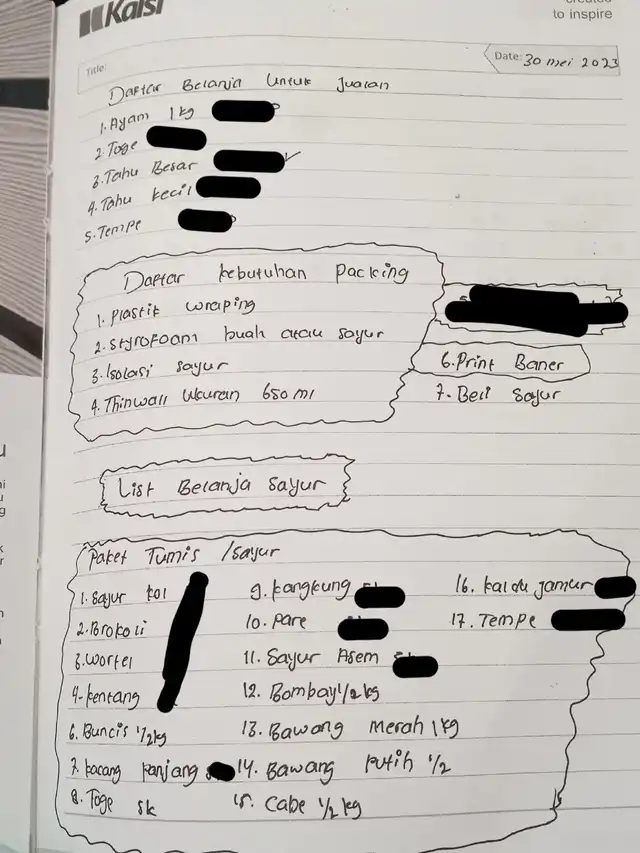 Kalsi
to inspire
Title:
Date: 30 mei 2023
Daftar Belanja untuk Jualan
1. Ayam 1 kg
2. Toge
3. Tahu Besar
4. Tahu kecil
5. Tempe
Daftar kebutuhan packing
1. Plastik wraping
2. Styrofoam buah atau sayur
3. Isolasi sayur
4. Thinwall Ukuran 650 ml
6. Print Baner
7. Beli Sayur
List Belanja Sayur
Paket Tumis /sayur
1. Sayur kol
2. Brokoli
3. Wortel
4. kentang
6. Buncis 1/2 kg
7. kacang panjang
8. Toge 5k
9. kangkung
10. Pare
11. Sayur Asem
12. Bombay 1/2 kg
13. Bawang Merah 1 kg
14. Bawang Putih 1/2
15. Cabe 1/2 kg
16. kaldu jamur
17. Tempe